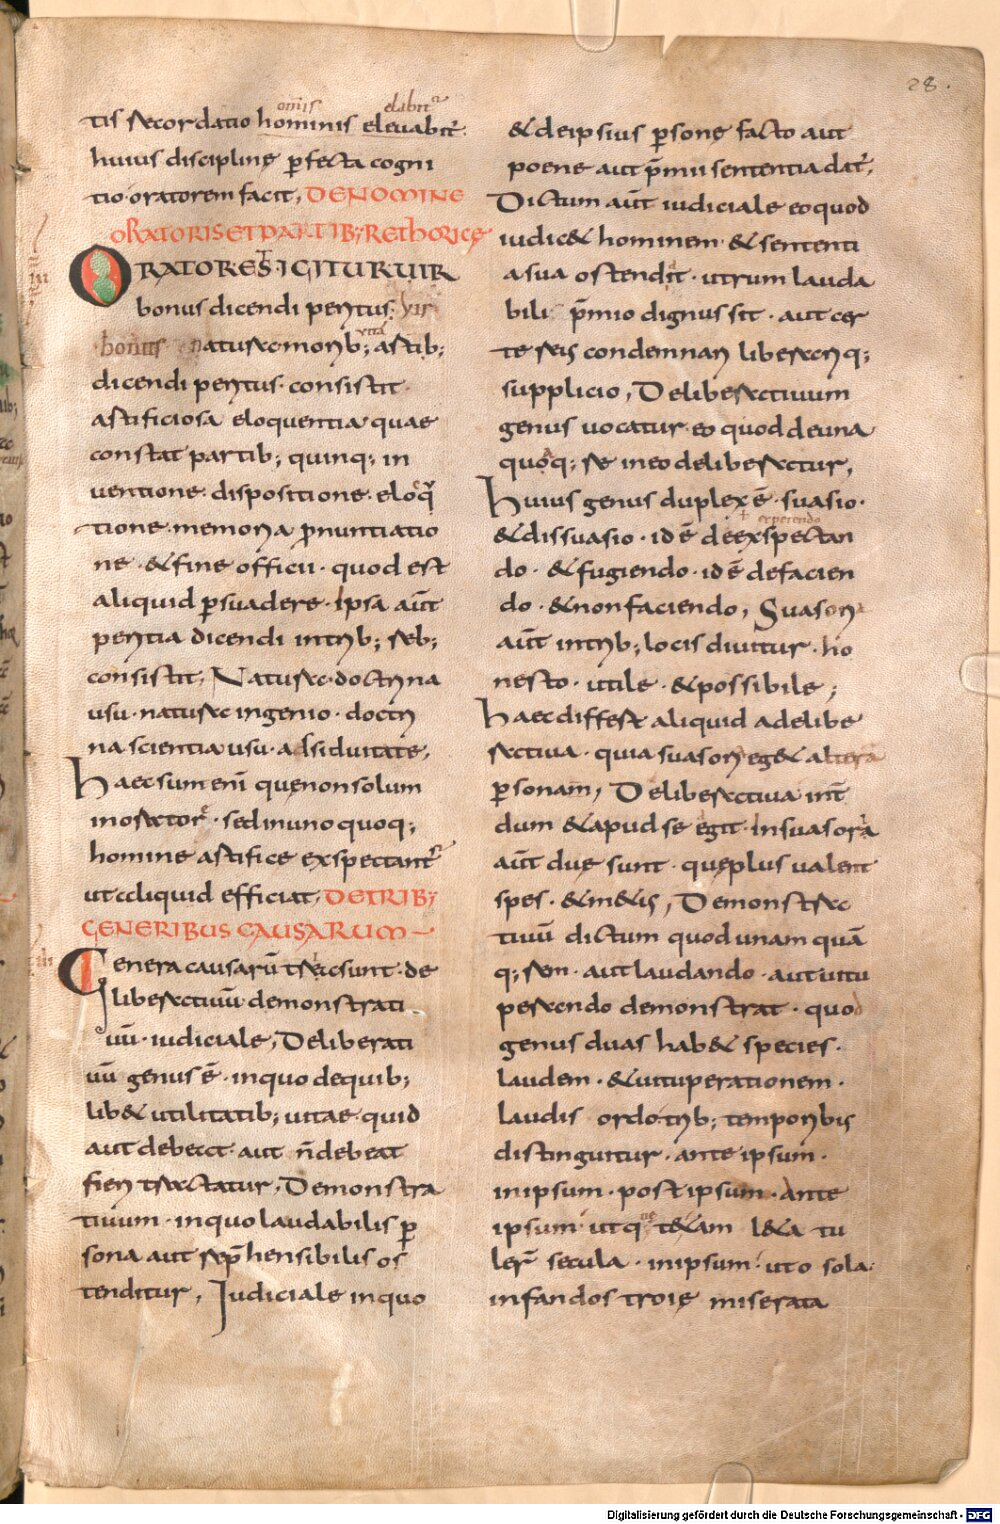 28.
omis elabit᷑
tis recordatio hominis eleuabit᷑.
huius discipline ꝑfecta cogni
tio oratorem facit, DE NOMINE
ORATORIS ET PARTIB; RETHORICĘ
ORATOR EST IGITUR UIR
bonus dicendi peritus; vir
bonus natura morib; artib;
dicendi peritus consistit
artificiosa eloquentia quae
constat partib; quinq; in
uentione. dispositione. eloq̄
tione. memoria ꝓnuntiatio
ne. & fine officii. quod est
aliquid ꝑsuadere. ipsa aūt
peritia dicendi in trib; reb;
consistit, Natura. doctrina
usu. natura ingenio. doctri
na scientia usu. adsiduitate,
haec sunt enī que non solum
in oratore. sed in uno quoq;
homine artifice exspectant᷑
ut aliquid efficiat, DE TRIB;
GENERIBUS CAUSARUM
iiii
Genera causarū tria sunt. de
liberatiuū demonstrati
uū. iudiciale, Deliberati
uū genus ē. in quo de quib;
lib& utilitatib; uitae quid
aut debeat aut n̄ debeat
fieri tractatur, Demonstra
tiuum. in quo laudabilis ꝑ
sona aut rep̄hensibilis os
tenditur, Iudiciale in quo
& de ipsius ꝑsonę facto aut
poene aut p̄mii sententia dat᷑,
Dictum aūt iudiciale eo quod
iudic& hominem & sententi
a sua ostendit. utrum lauda
bili p̄mio dignus sit. aut cer
te reus condemnari liberariq;
supplicio, Deliberatiuum
genus uocatur eo quod de una
quoq; re in eo deliberatur,
huius genus duplex ē. suasio.
experendo
& dissuasio. id ē de exspectan
do. & fugiendo. id ē de facien
do. & non faciendo, Suasoria
aūt in trib; locis diuitur. ho
nesto. utile. & possibile;
haec differt aliquid a delibe
ratiua. quia suasoria eg& altera
ꝑsonam, Deliberatiua int̄
dum & apud se egit. In suasoria
aūt duę sunt. quę plus ualent
spes. & m&us, Demonstra
tiuū dictum quod unam quā
q; rem. aut laudando. aut uitu
perando demonstrat. quod
genus duas hab& species.
laudem. & uituperationem.
laudis ordo trib; temporibus
distinguitur. ante ipsum.
in ipsum. post ipsum. Ante
ipsum ut q t& tam l&a tu
lerт̄ secula. in ipsum. ut o sola
infandos troię miserata